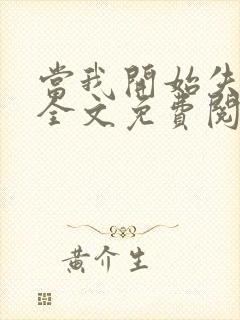 當我開始失
全文免費閱
黃介生